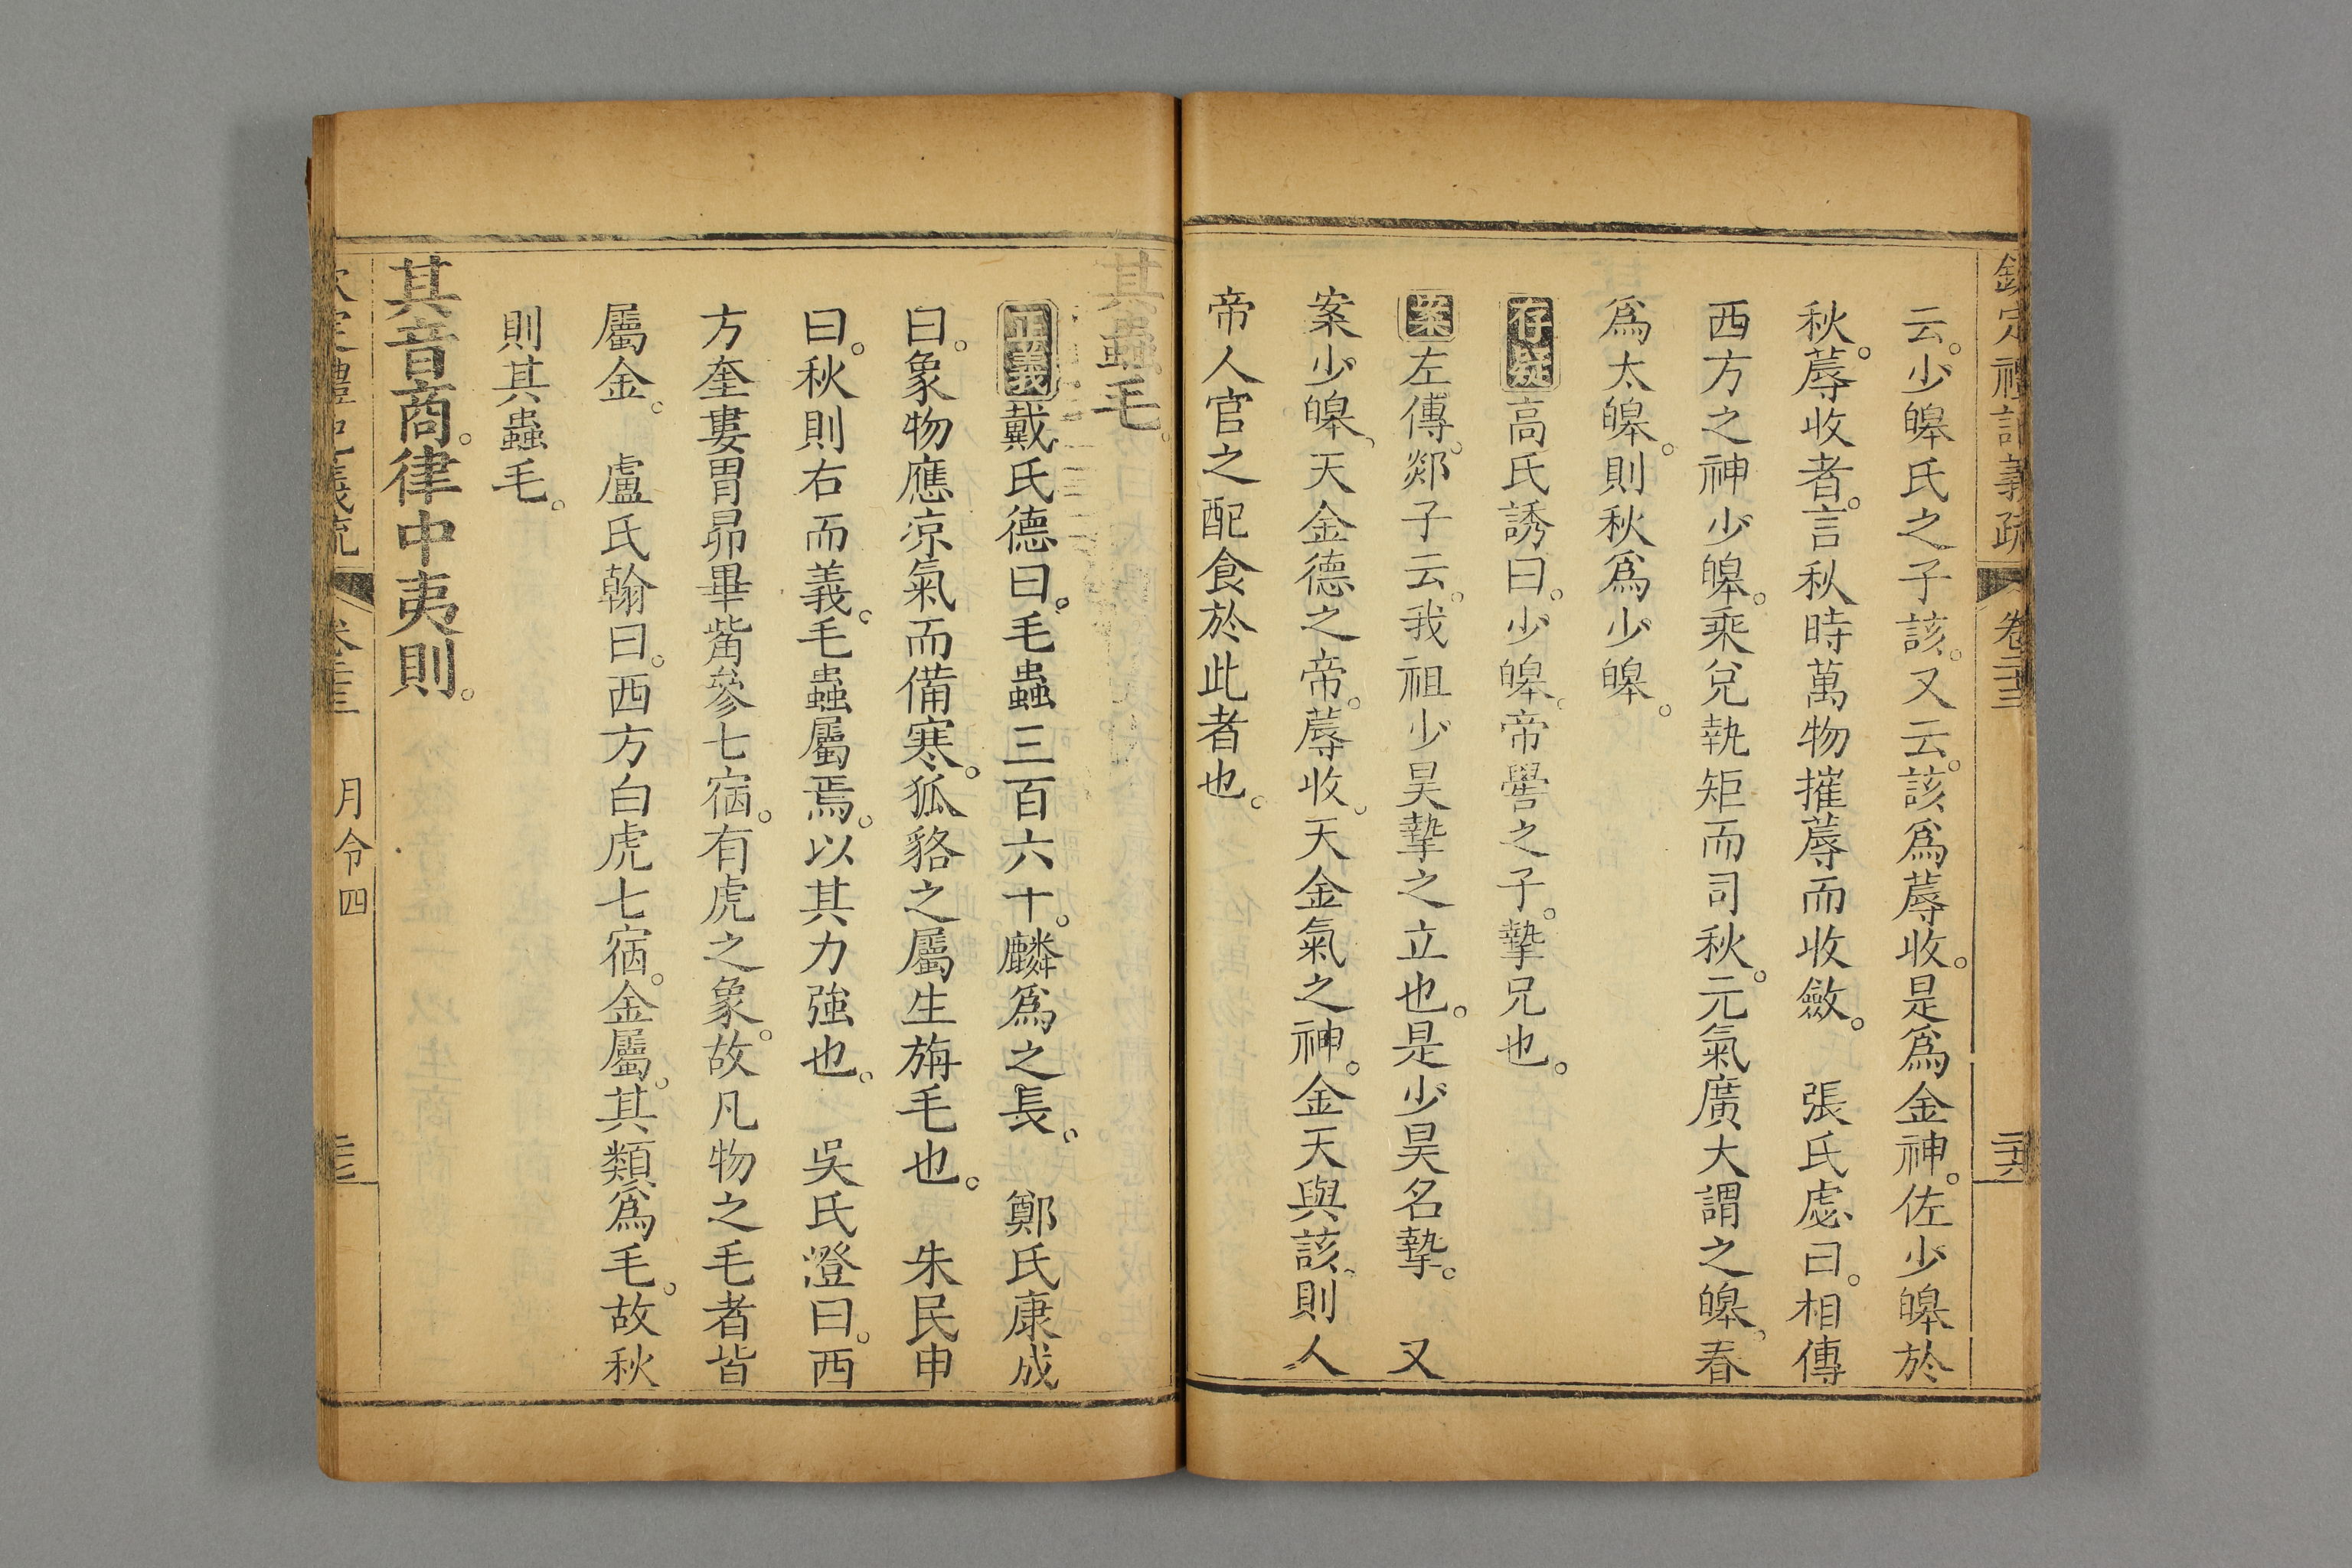 欽定禮記義疏 卷二十三 二十六
云。少皞氏之子該。又云。該爲蓐收。是爲金神。佐少皞於
秋。蓐收者。言秋時萬物摧蓐而收斂。 張氏虙曰。相傳
西方之神少皞。乘兌執矩而司秋。元氣廣大謂之皞、春
爲太皞。則秋爲少皞。
存疑高氏誘曰。少皞。帝嚳之子。摯兄也。
案左傳。郯子云。我祖少昊摯之立也。是少昊名摯。 又
案少皞、天金德之帝。蓐收。天金氣之神。金天與該、則人
帝人官之配食於此者也。
其蟲毛。
正義戴氏德曰。毛蟲三百六十。麟爲之長。 鄭氏康成
曰。象物應涼氣而備寒。狐貉之屬生旃毛也。 朱民申
曰。秋則右而義。毛蟲屬焉。以其力強也。 吳氏澄曰。西
方奎婁胃昴畢觜參七宿。有虎之象。故凡物之毛者皆
屬金。 盧氏翰曰。西方白虎七宿。金屬。其類爲毛。故秋
則其蟲毛。
其音商。律中夷則。
欽定禮記義疏 卷二十三 月令四 二十七